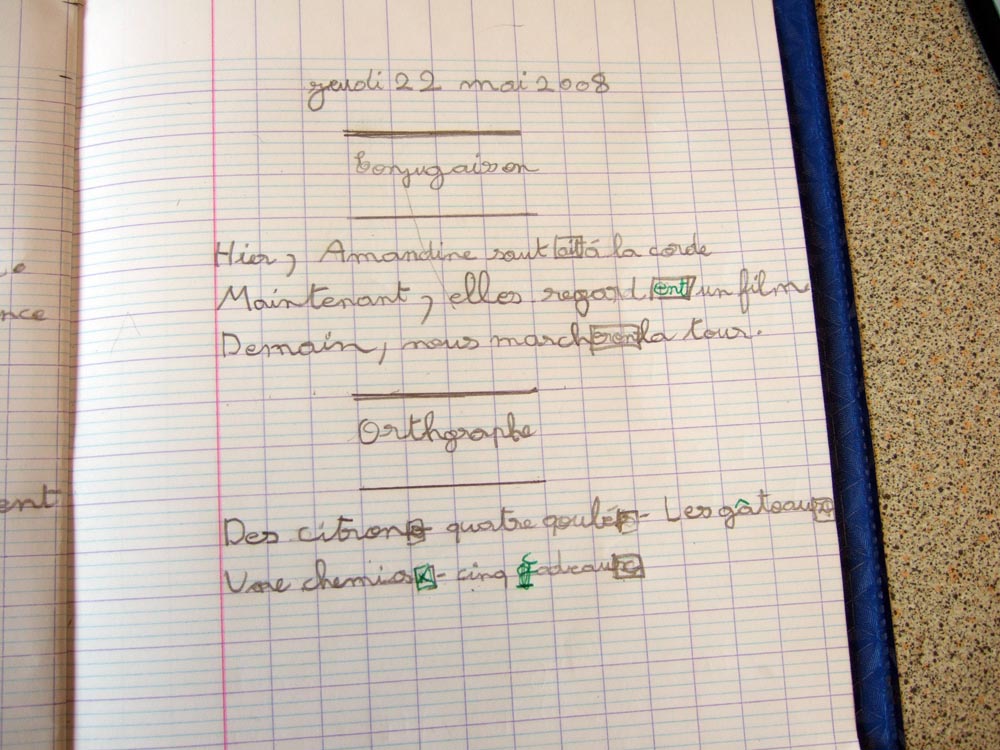 jeudi 22 mai 2008
Conjugaison
Hier, Amandine sautait à la corde
Maintenant, elles regardent un film
Demain, nous marcheron la tour.
Orthgraphe
Des citrons - quatre - Les gâteaux
Une - cinq
nce
ent